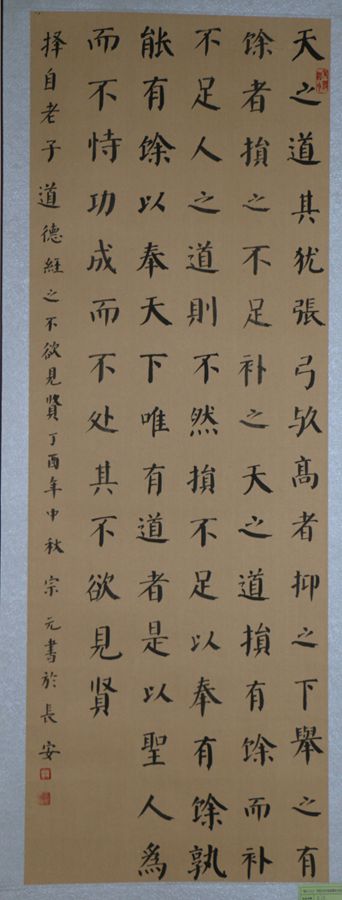 天之道其犹張弓欤髙者抑之下舉之有
馀者損之不足补之天之道損有馀而补
不足人之道則不然損不足以奉有馀孰
能有馀以奉天下唯有道者是以聖人為
而不恃功成而不处其不欲見贤
择自老子道德經之不欲見賢丁酉年中秋宗元書於長安